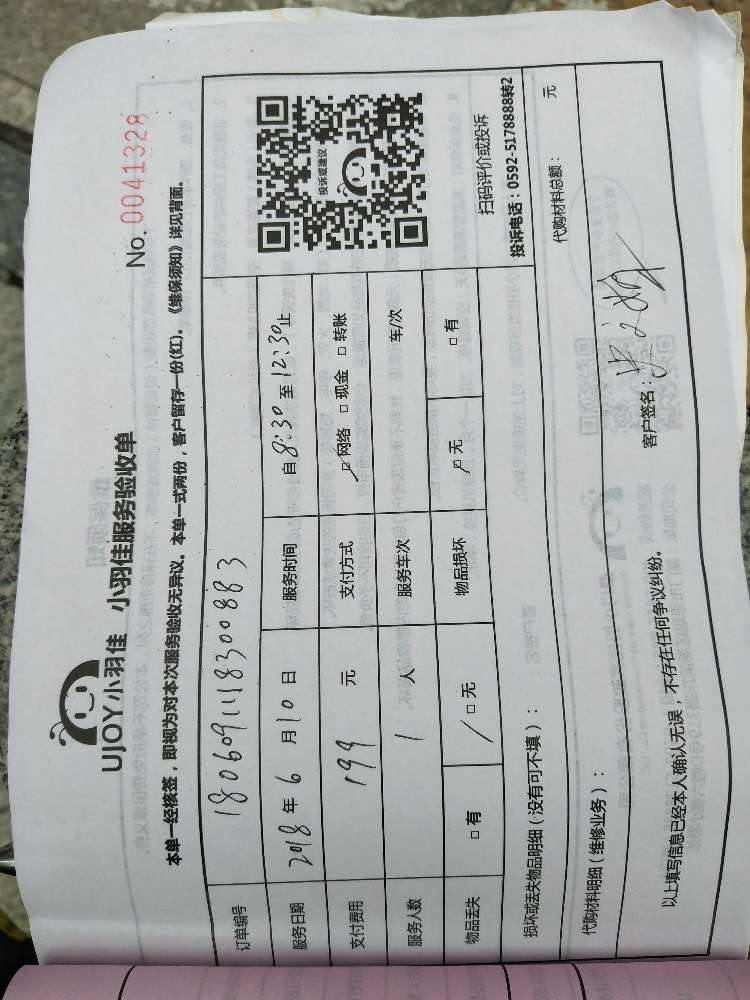 UJOY小羽佳 小羽佳服务验收单
No. 0041328
本单一经核签，即视为对本次服务验收无异议。本单一式两份，客户留存一份(红)。《维保须知》详见背面。
订单编号 1806091118300883
服务日期 2018年6月10日 服务时间 自8:30至12:30止
支付费用 199 元 支付方式 ☑网络 □现金 □转账
服务人数 1 人 服务车次 车/次
物品丢失 □有 ☑无 物品损坏 ☑无 □有
投诉或建议
扫码评价或投诉
投诉电话：0592-5178888转2
损坏或丢失物品明细(没有可不填)：
代购材料明细(维修业务)：
代购材料总额： 元
以上填写信息已经本人确认无误，不存在任何争议纠纷。 客户签名：